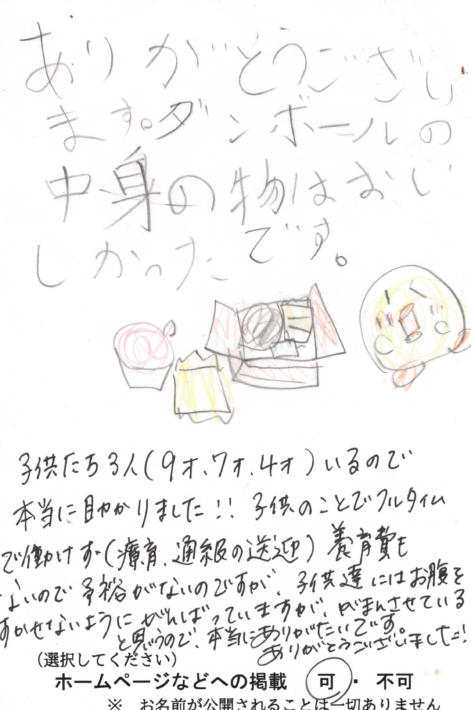 ありがとうござい
ます。ダンボールの
中身の物はおい
しかったです。
子供たち3人(9才、7才、4才)いるので
本当に助かりました!!子供のことでフルタイム
で働けず(療育、通級の送迎)養育費も
ないので余裕がないのですが、子供達にはお腹を
すかせないようにがんばっていますが、がまんさせている
と思うので、本当にありがたいです。
ありがとうございました!
(選択してください)
ホームページなどへの掲載 可・不可
※ お名前が公開されることは一切ありません